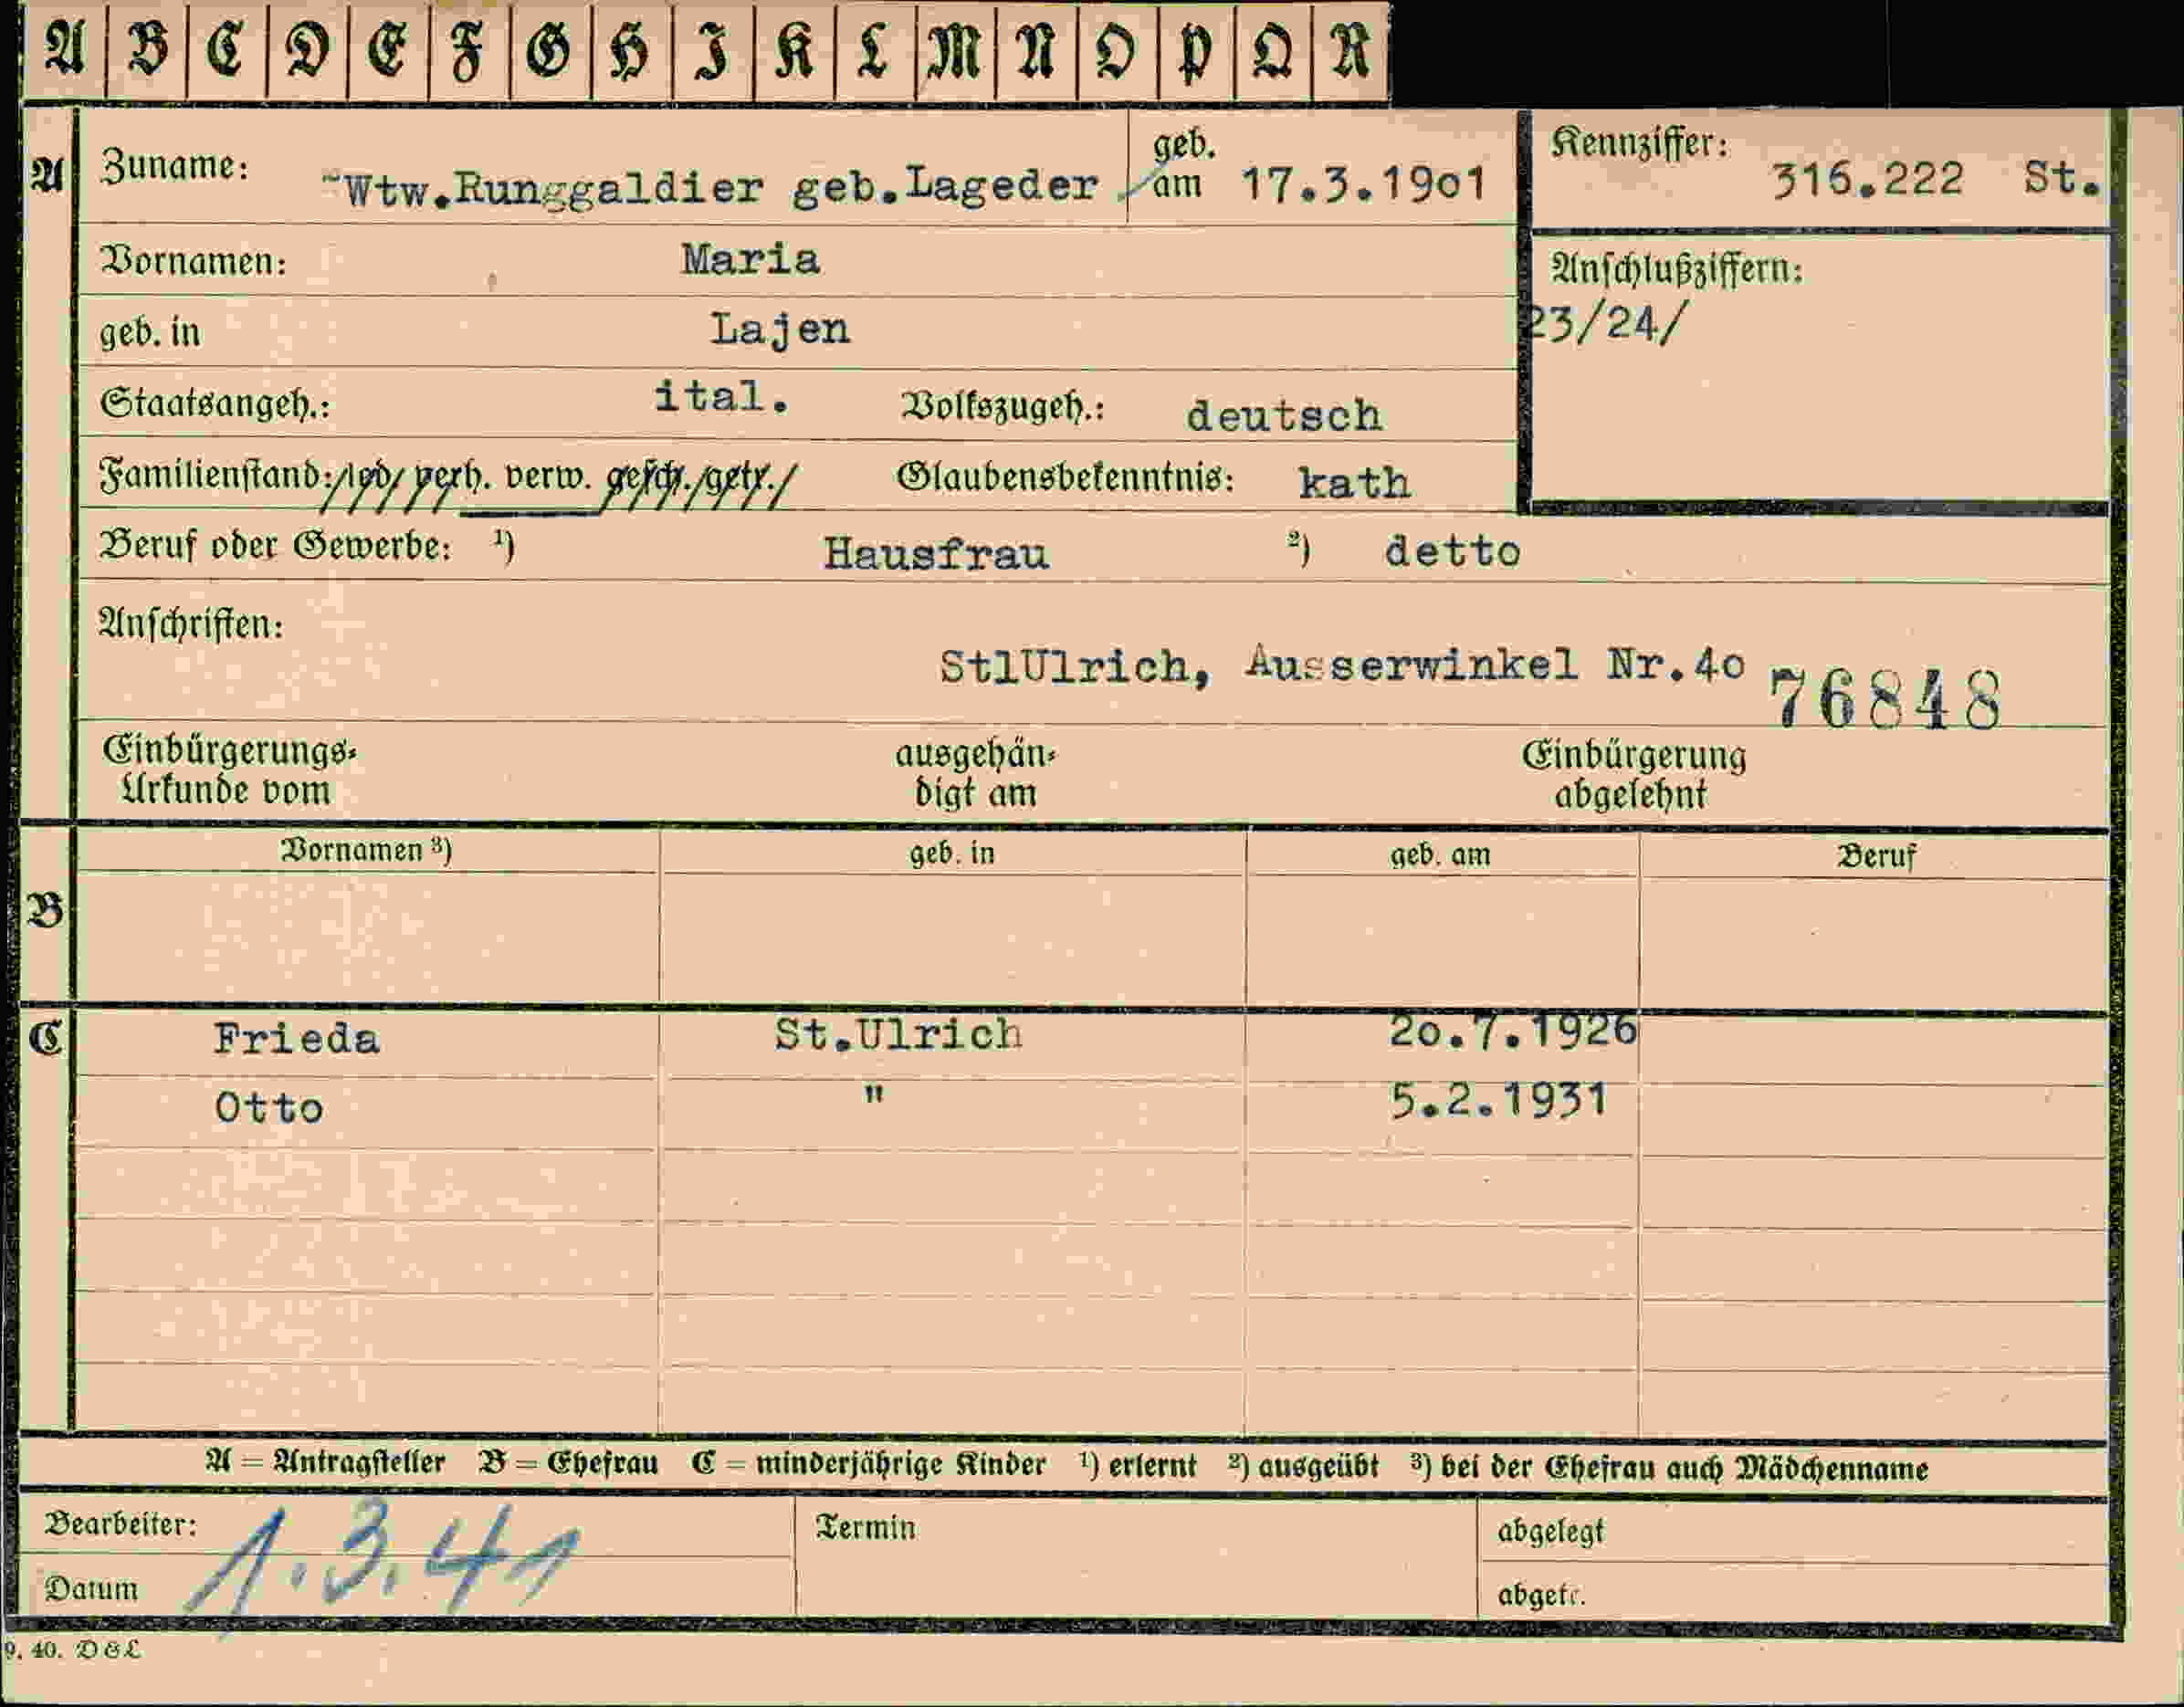 A B C D E F G H I K L M N O P Q R
A Zuname: Wtw.Runggaldier geb.Lageder geb. am 17.3.19o1
Kennziffer: 316.222 St.
Vornamen: Maria
Anschlußziffern:
23/24/
geb. in Lajen
Staatsangeh.: ital. Volkszugeh.: deutsch
Familienstand: led. verh. verw. gesch. getr. Glaubensbekenntnis: kath
Beruf oder Gewerbe: ¹) Hausfrau ²) detto
Anschriften:
StlUlrich, Ausserwinkel Nr.4o 76848
Einbürgerungs- ausgehän- Einbürgerung
Urkunde vom digt am abgelehnt
Vornamen ³) geb. in geb. am Beruf
B
C Frieda St.Ulrich 2o.7.1926
Otto " 5.2.1931
A = Antragsteller B = Ehefrau C = minderjährige Kinder ¹) erlernt ²) ausgeübt ³) bei der Ehefrau auch Mädchenname
Bearbeiter: Termin abgelegt
1.3.41
Datum abgetr.
9. 40. D&L